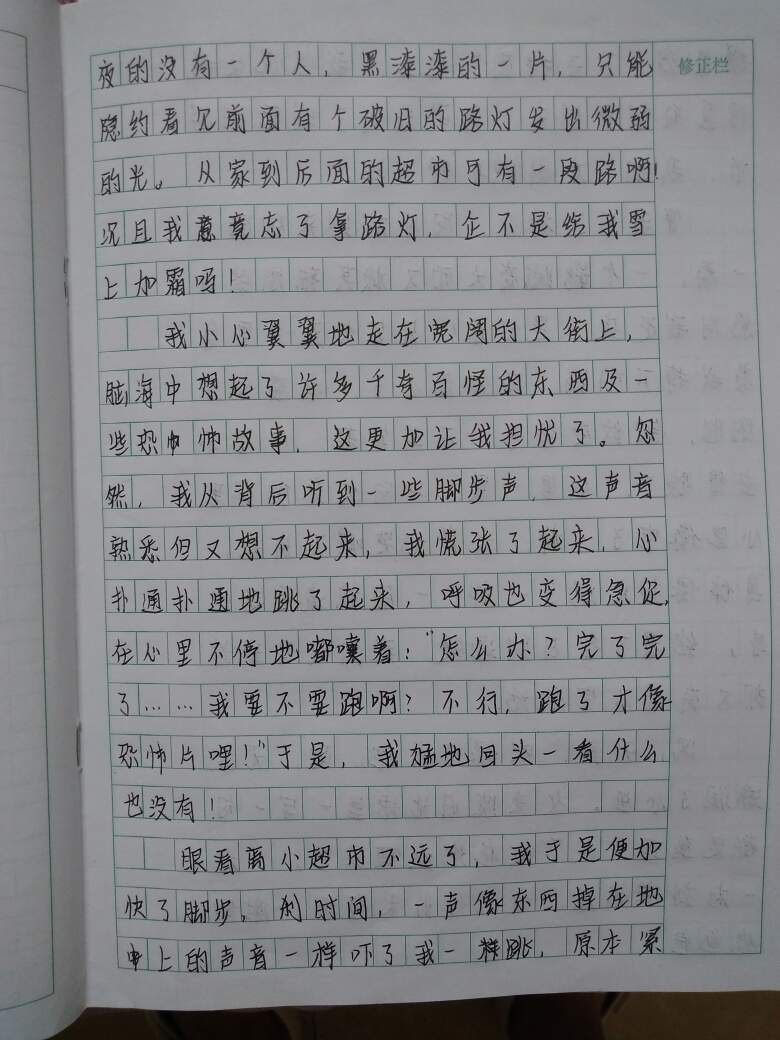 夜的没有一个人，黑漆漆的一片，只能
修正栏
隐约看见前面有个破旧的路灯发出微弱
的光。从家到后面的超市可有一段路啊！
况且我意竟忘了拿路灯，企不是给我雪
上加霜吗！
我小心翼翼地走在宽阔的大街上，
脑海中想起了许多千奇百怪的东西及一
些恐怖故事，这更加让我担忧了。忽
然，我从背后听到一些脚步声，这声音
熟悉但又想不起来，我慌张了起来，心
扑通扑通地跳了起来，呼吸也变得急促，
在心里不停地嘟囔着：“怎么办？完了完
了……我要不要跑啊？不行，跑了才像
恐怖片哩！”于是，我猛地回头一看什么
也没有！
眼看离小超市不远了，我于是便加
快了脚步，刹时间，一声像东西掉在地
上的声音一样吓了我一跳，原本紧